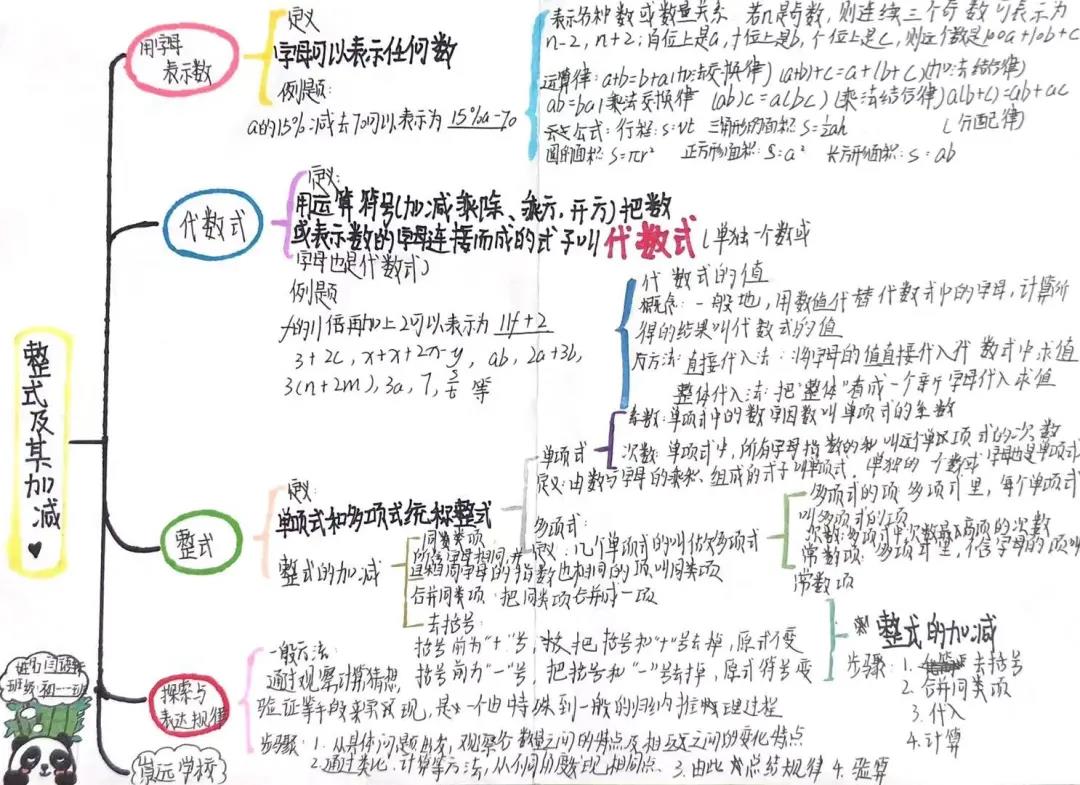 整式及其加减
用字母
表示数
定义
字母可以表示任何数
例题:
a的15%减去70可以表示为 15%a-70
表示各种数或数量关系 若n是奇数,则连续三个奇数可表示为
n-2,n+2;百位上是a,十位上是b,个位上是c,则这个数是100a+10b+c
运算律:a+b=b+a(加法交换律)(a+b)+c=a+(b+c)(加法结合律)
ab=ba(乘法交换律 (ab)c=a(bc)(乘法结合律)a(b+c)=ab+ac
(分配律)
公式:行程:s=vt 三角形的面积:S=½ah
圆的面积:S=πr² 正方形面积:S=a² 长方形面积:s=ab
代数式
定义:
用运算符号(加减乘除、乘方,开方)把数
或表示数的字母连接而成的式子叫代数式(单独一个数或
字母也是代数式)
例题
f的11倍再加上2可以表示为 11f+2
3+2c,x+x+2x-y,ab,2a+3b,
3(n+2m),3a,7,s/t 等
代数式的值
概念:一般地,用数值代替代数式中的字母,计算所
得的结果叫代数式的值
方法:直接代入法:将字母的值直接代入代数式中求值
整体代入法:把"整体"看成一个新字母代入求值
整式
定义:
单项式和多项式统称整式
单项式
系数:单项式中的数字因数叫单项式的系数
次数:单项式中,所有字母指数的和叫这个单项式的次数
定义:由数与字母的乘积组成的式子叫单项式,单独的一个数或字母也是单项式
多项式:
定义:几个单项式的叫做多项式
多项式的项 多项式里,每个单项式
叫多项式的项
次数:多项式中次数最高项的次数
常数项:多项式里,不含字母的项叫
常数项
整式的加减
同类项
所含字母相同,并
且相同字母的指数也相同的项叫同类项
合并同类项:把同类项合并成一项
去括号:
括号前为"+"号,把括号和"+"号去掉,原式不变
括号前为"-"号,把括号和"-"号去掉,原式符号变
整式的加减
步骤:1.去括号
2.合并同类项
3.代入
4.计算
探索与
表达规律
一般方法:
通过观察计算猜想,
验证等手段来发现,是一个由特殊到一般的归纳推理过程
步骤:1.从具体问题出发,观察各数量之间的特点及相互之间的变化特点
2.通过类比、计算等方法,从不同角度发现相同点、3.由此总结规律 4.验算
班级:初一
学校